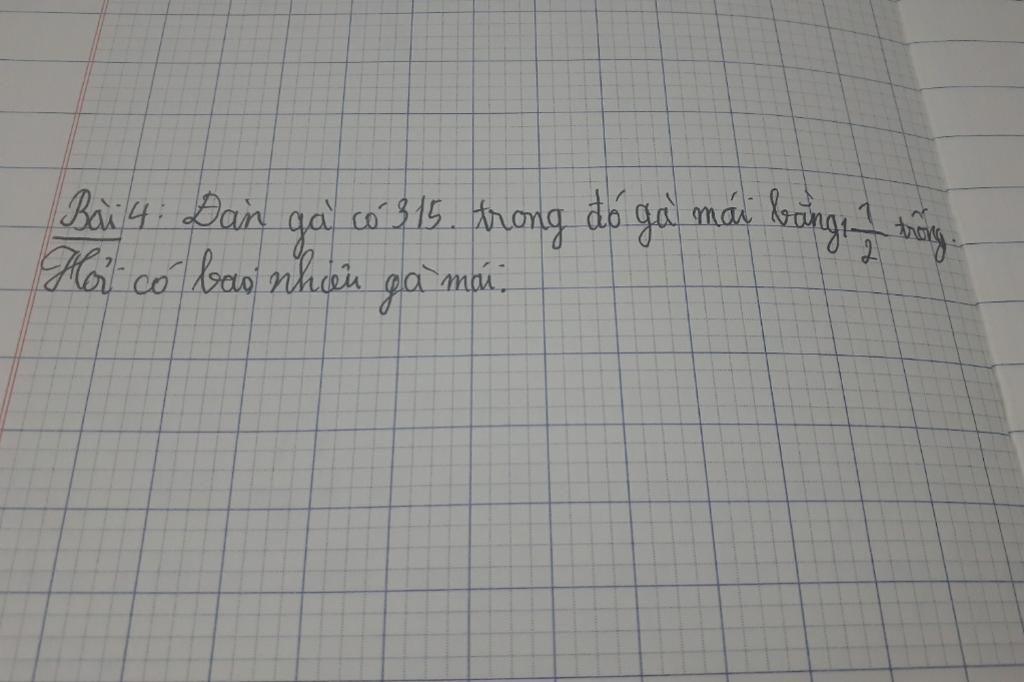 Bài 4: Đàn gà có 315. trong đó gà mái bằng 1/2 trống.
Hỏi có bao nhiêu gà mái.